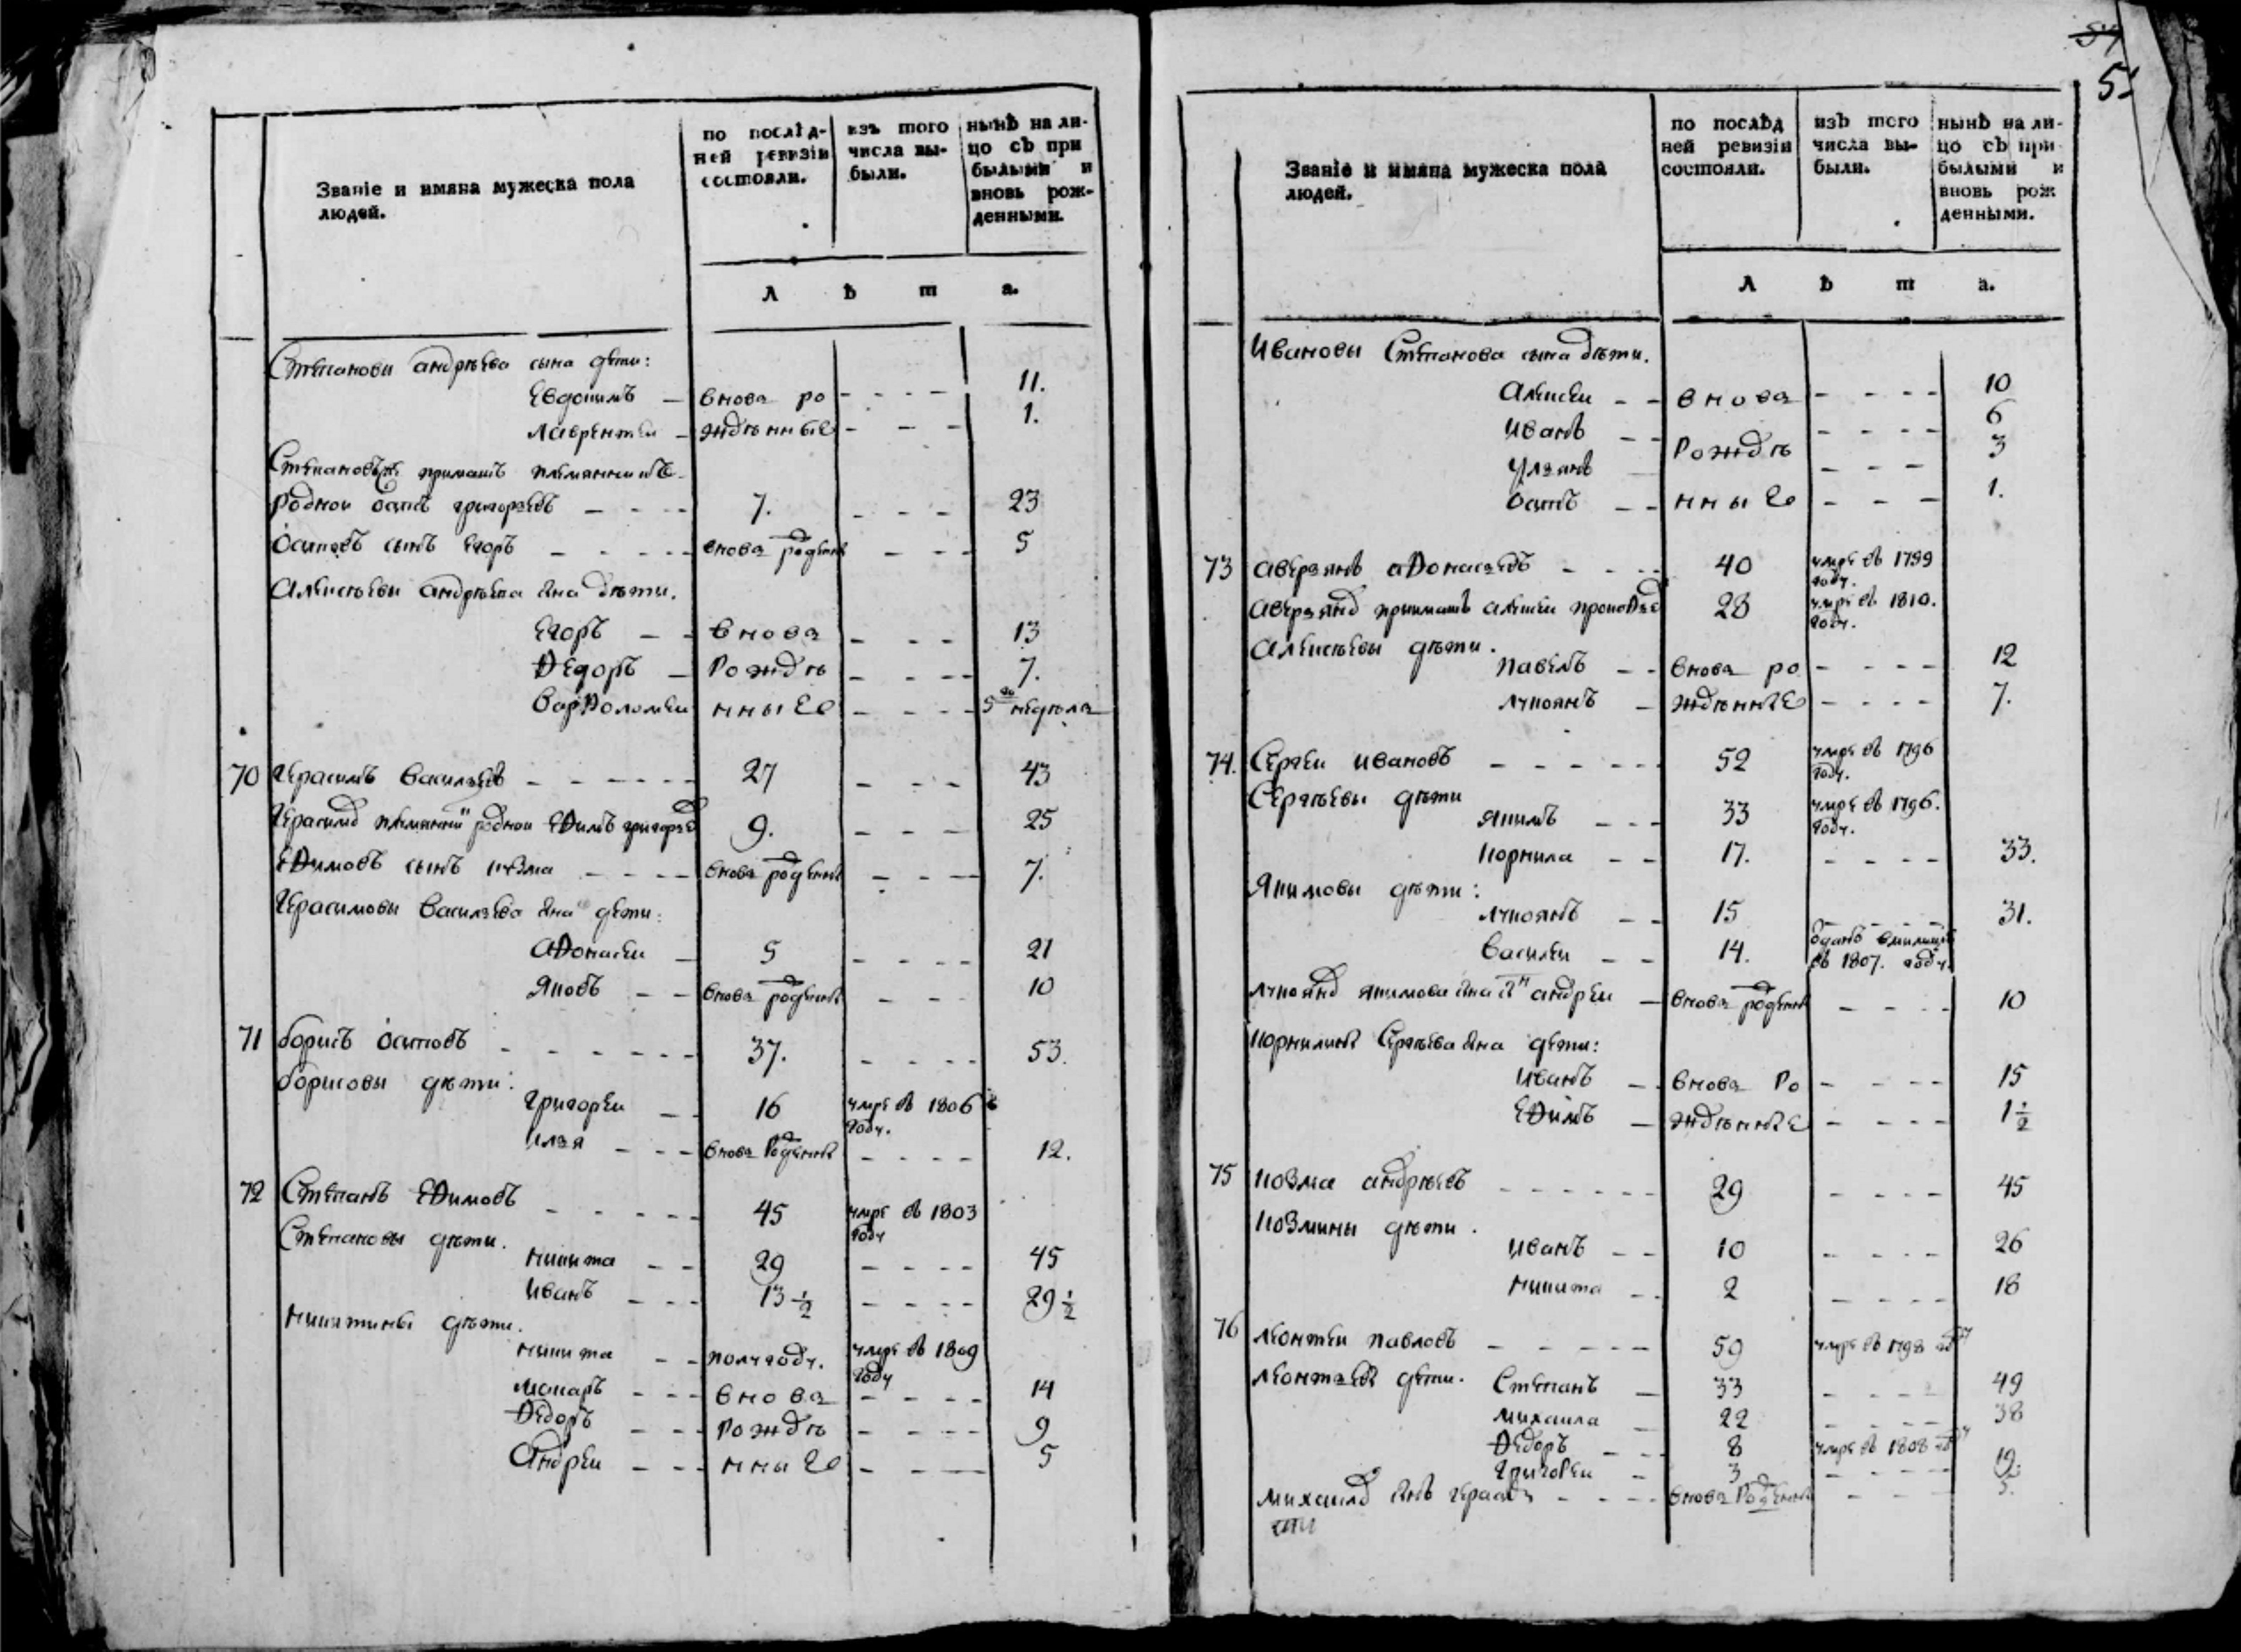 Званіе и имяна мужеска пола
людей.
по послѣд-
ней ревизіи
состояли.
изъ того
числа вы-
были.
нынѣ на ли-
цо съ при
былыми и
вновь рож-
денными.
Л ѣ т а.
Степановы андрѣева сына дети:
Евдокимъ — внова ро - - - - 11.
лаврентеи — ждѣнные - - - 1.
Степановъ приматъ племянникъ
роднои осипъ григорьевъ - - - 7. - - - 23
Осиповъ сынъ егоръ - - - - внова - - - 5
Алексѣевы андрѣева сна дѣти.
Егоръ - - внова - - - 13
Ѳедоръ — рождѣ - - - - 7.
варѳоломеи нные - - - - 5 недѣль
70 Герасимъ васильевъ - - - - - - 27 - - - 43
Герасима племянни к роднои еѳимъ григорьев 9. - - - 25
еѳимовъ сынъ козма - - - - внова - - - 7.
Герасимовы васильева сна дети:
аѳонасеи — 5 - - - - 21
яковъ - - внова - - - 10
71 борисъ осиповъ - - - - - - 37. - - - - 53.
борисовы дѣти:
григореи - - 16 умре въ 1806
году.
илья - - - внова - - - - 12.
72 Степанъ еѳимовъ - - - - - 45 умре въ 1803
году
Степановы дѣти.
никита - - 29 - - - - 45
иванъ - - - 13 1/2 - - - - 29 1/2
никитины дѣти.
никита - - полугоду. умре въ 1809
году
макаръ - - - внова - - - - 14
Ѳедоръ - - - рождѣ - - - - 9
андреи - - - нные - - - 5
54
5
Званіе и имяна мужеска пола
людей.
по послѣд
ней ревизіи
состояли.
изъ того
числа вы-
были.
нынѣ на ли-
цо съ при
былыми и
вновь рож
денными.
Л ѣ т а.
ивановы Степанова сына дѣти.
алексеи - - внова - - - - 10
иванъ - - - - - - 6
рождѣ
улянъ - - - 3
осипъ - - нные - - - 1.
73 аверьянъ аѳонасьевъ - - - - 40 умре въ 1799
году.
аверьяна приимашъ алексеи прокоѳье 28 умре въ 1810.
году.
алексѣевы дѣти.
павелъ - - внова ро - - - - 12
лукоянъ — жденные - - - - 7.
74. Сергеи ивановъ - - - - - - 52 умре въ 1796
году.
Сергѣевы дѣти
якимъ - - - 33 умре въ 1796.
году.
корнила - - 17. - - - - 33.
якимовы дѣти:
лукоянъ - - 15 - - - - 31.
василеи - - 14. въ 1807. году.
лукояна якимова сна андреи — внова - - - - 10
корнилины Сергѣева сна дети:
иванъ — внова ро - - - - 15
еѳимъ — ждѣнные - - - - 1 1/2
75 козма андрѣевъ - - - - - - 29 - - - - 45
козмины дѣти.
иванъ - - 10 - - - - 26
никита - - 2 - - - - 18
76 леонтеи павловъ - - - - - 59 умре въ 1798
леонтьевы дети. Степанъ — 33 - - - - 49
михаила — 22 - - - - 38
Ѳедоръ - - 8 умре въ 1808
григореи - 3 - - - - 19.
михаила - - - - внова - - - - 5.